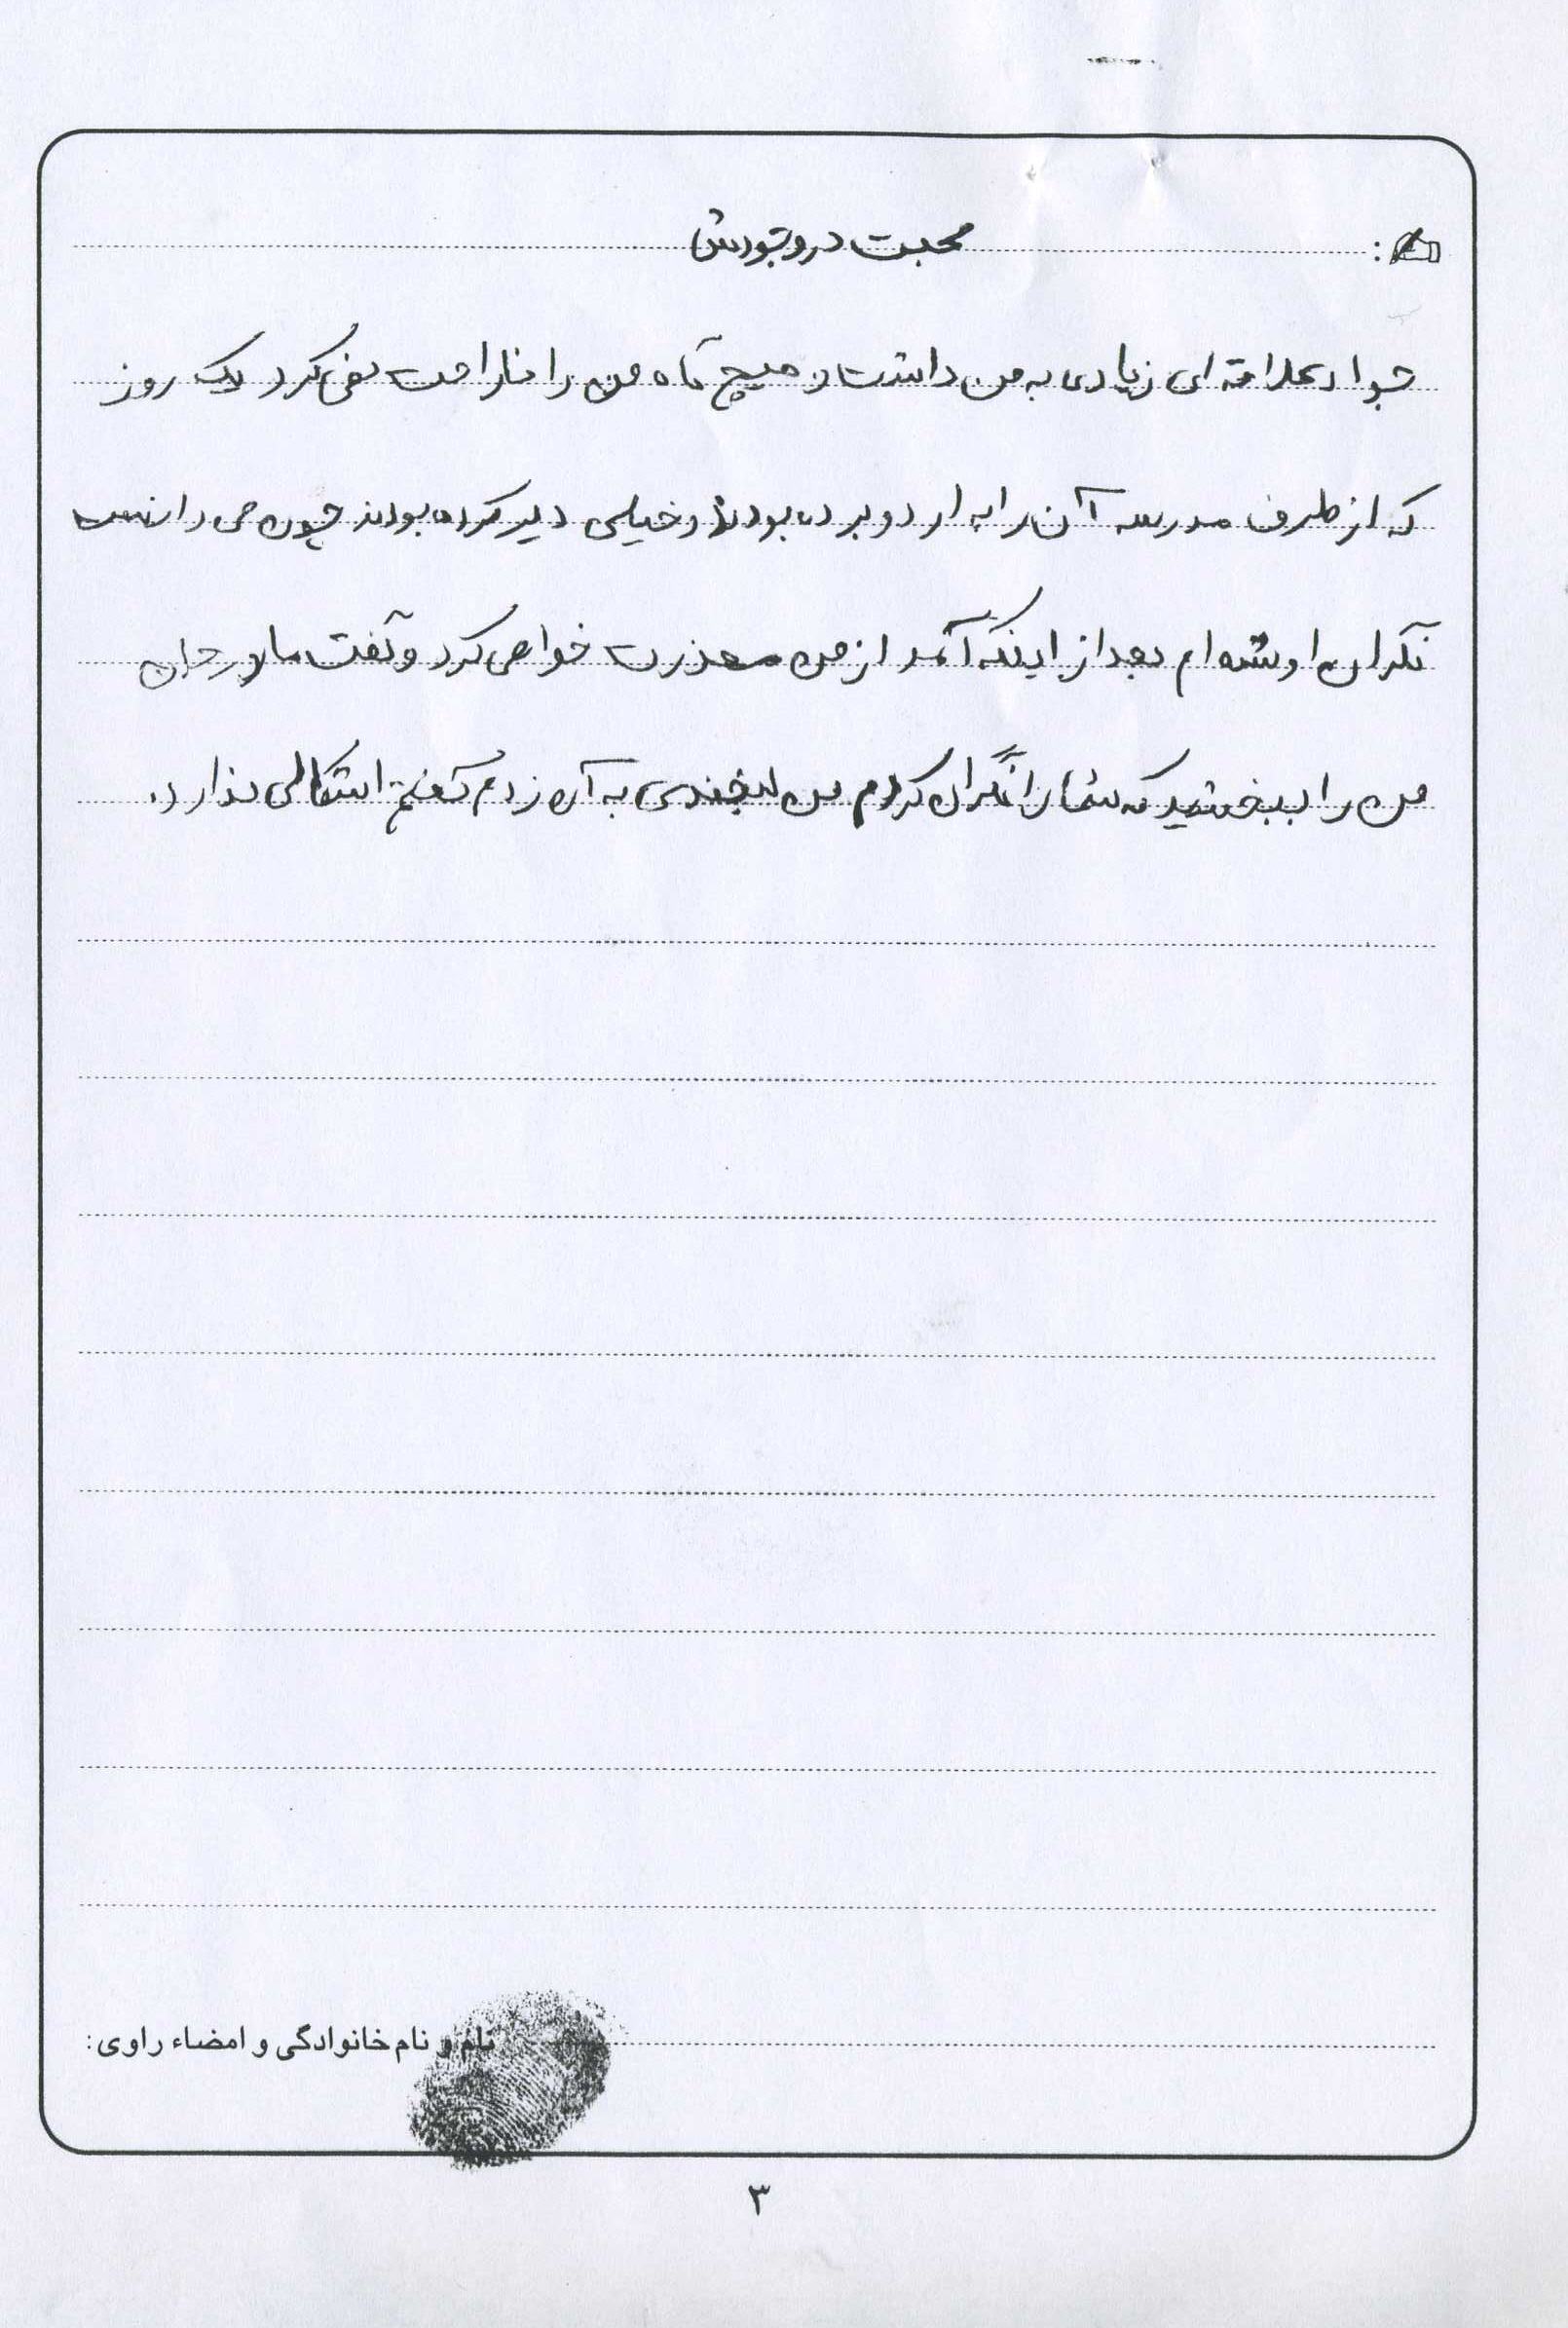 محبت در وجودش
جواد علاقه ای زیادی به من داشت و هیچ گاه من را ناراحت نمی کرد یک روز
که از طرف مدرسه آن را به اردو برده بودند و خیلی دیر کرده بودند چون می دانست
نگران او شده ام بعد از اینکه آمد از من معذرت خواهی کرد و گفت مادر جان
من را ببخشید که شما را نگران کردم من لبخندی به آن زدم گفتم اشکالی ندارد.
نام و نام خانوادگی و امضاء راوی:
۳